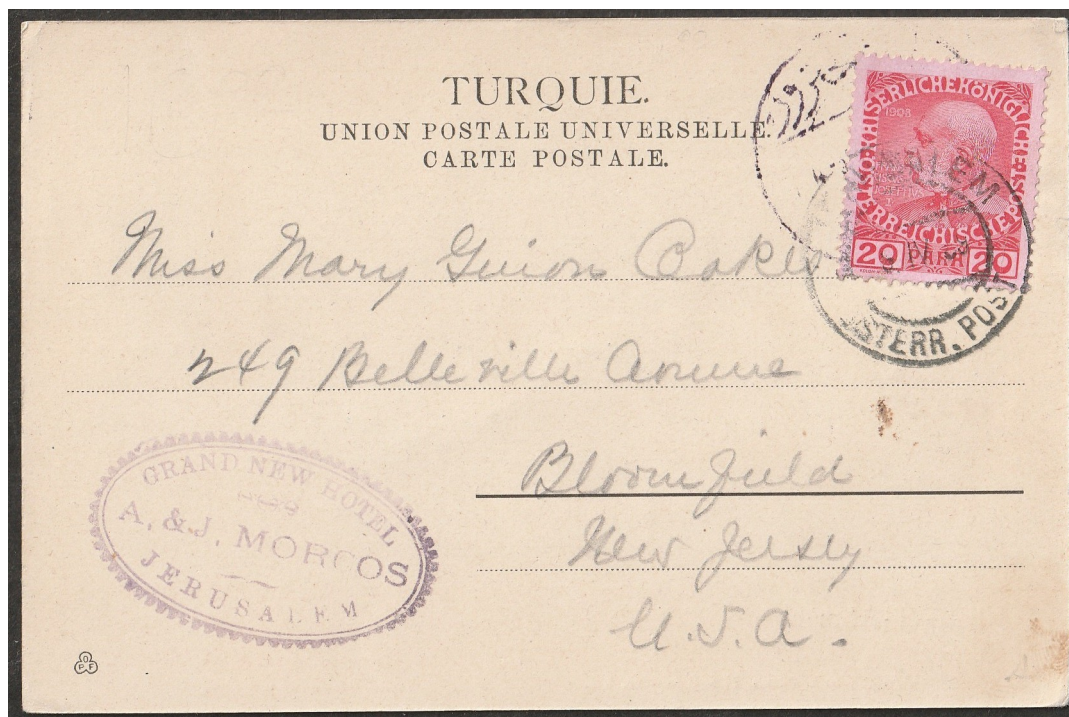 TURQUIE.
UNION POSTALE UNIVERSELLE.
CARTE POSTALE.
KAISERLICHEKÖNIGLICHE ÖSTERREICHISCHE POST
1908
20 PARA 20
JERUSALEM
ÖSTERR. POST
Miss Mary Guion Oakes
249 Belleville Avenue
Bloomfield
New Jersey
U.S.A.
GRAND NEW HOTEL
A. & J. MORCOS
JERUSALEM
O
P F